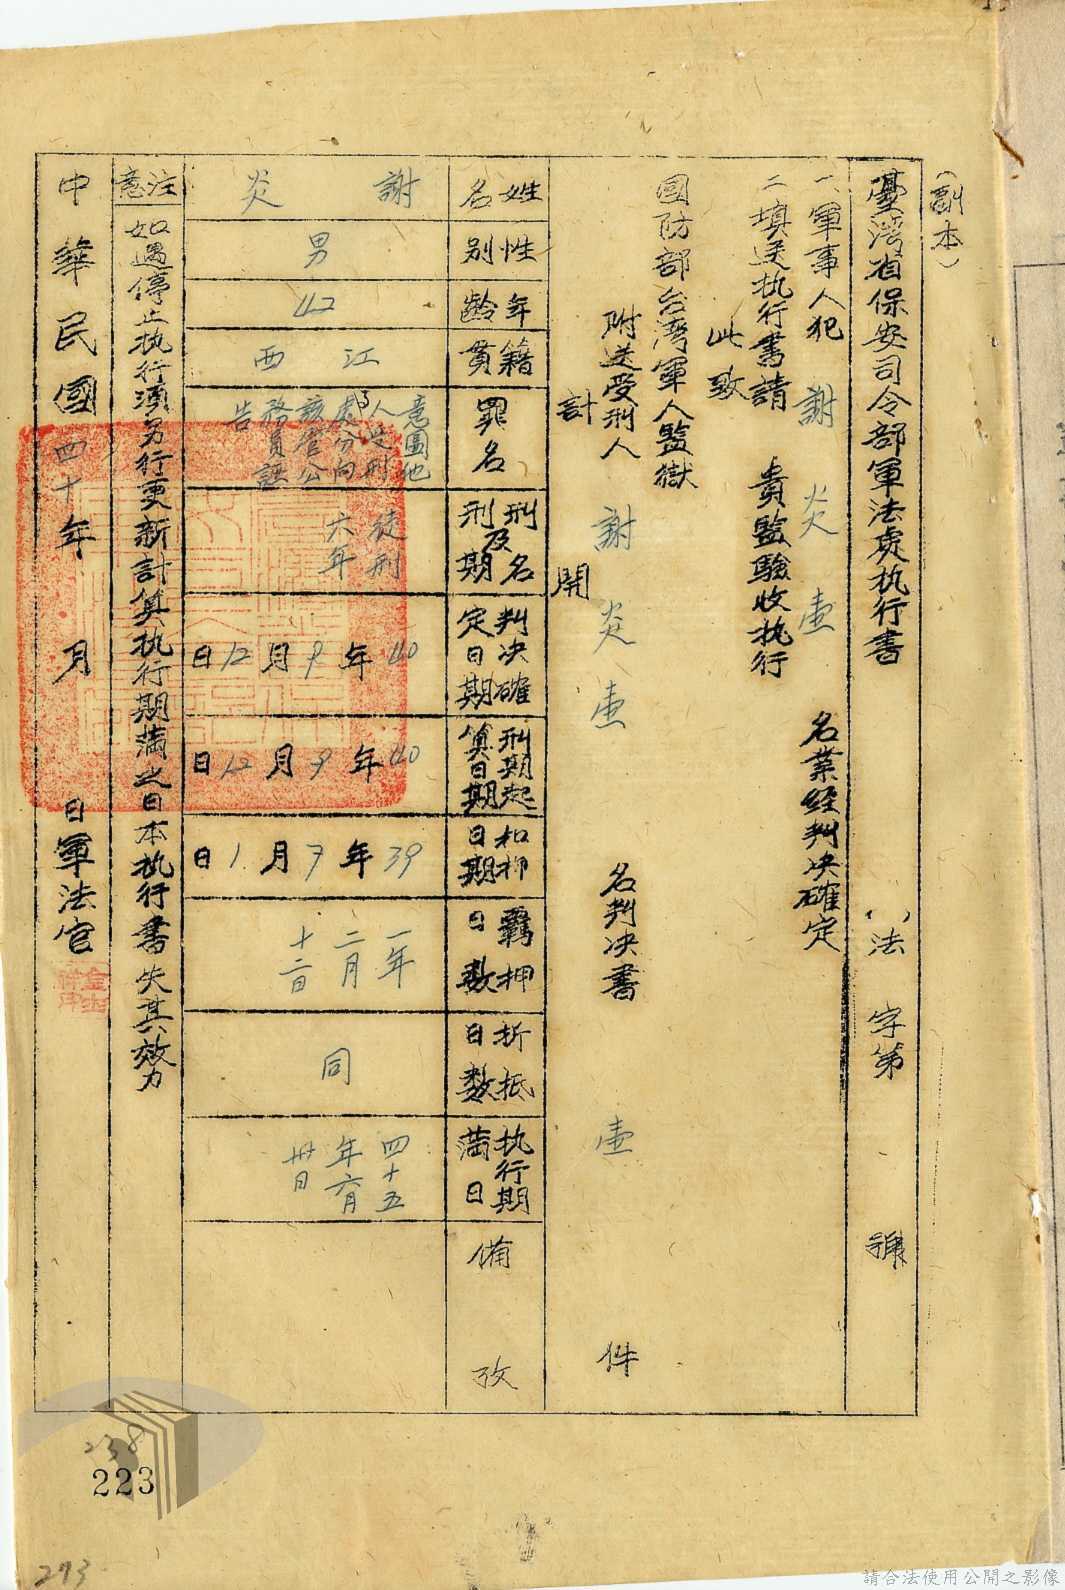 (副本)
臺灣省保安司令部軍法處执行書 ( )法 字第 號
一、軍事人犯 謝炎 壷 名業經判决確定
二填送执行書請 貴監驗收执行
此致
國防部台湾軍人監獄
附送受刑人 謝炎 壷 名判决書 壷 件
計開
姓名 謝炎
性別 男
年齡 42
籍貫 江西
罪名 意圖他人受刑事處分向該管公務員誣告
刑名及刑期 徒刑六年
判决確定日期 40年9月12日
刑期起算日期 40年9月12日
扣押日期 39年7月1日
羈押日数 一年二月十二日
折抵日数 同
执行期满日 四十五年六月卅日
備攷
注意 如遇停止执行須另行更新計算执行期满之日本执行書失其效力
中華民國四十年 月 日軍法官
238
223
273
請合法使用公開之影像